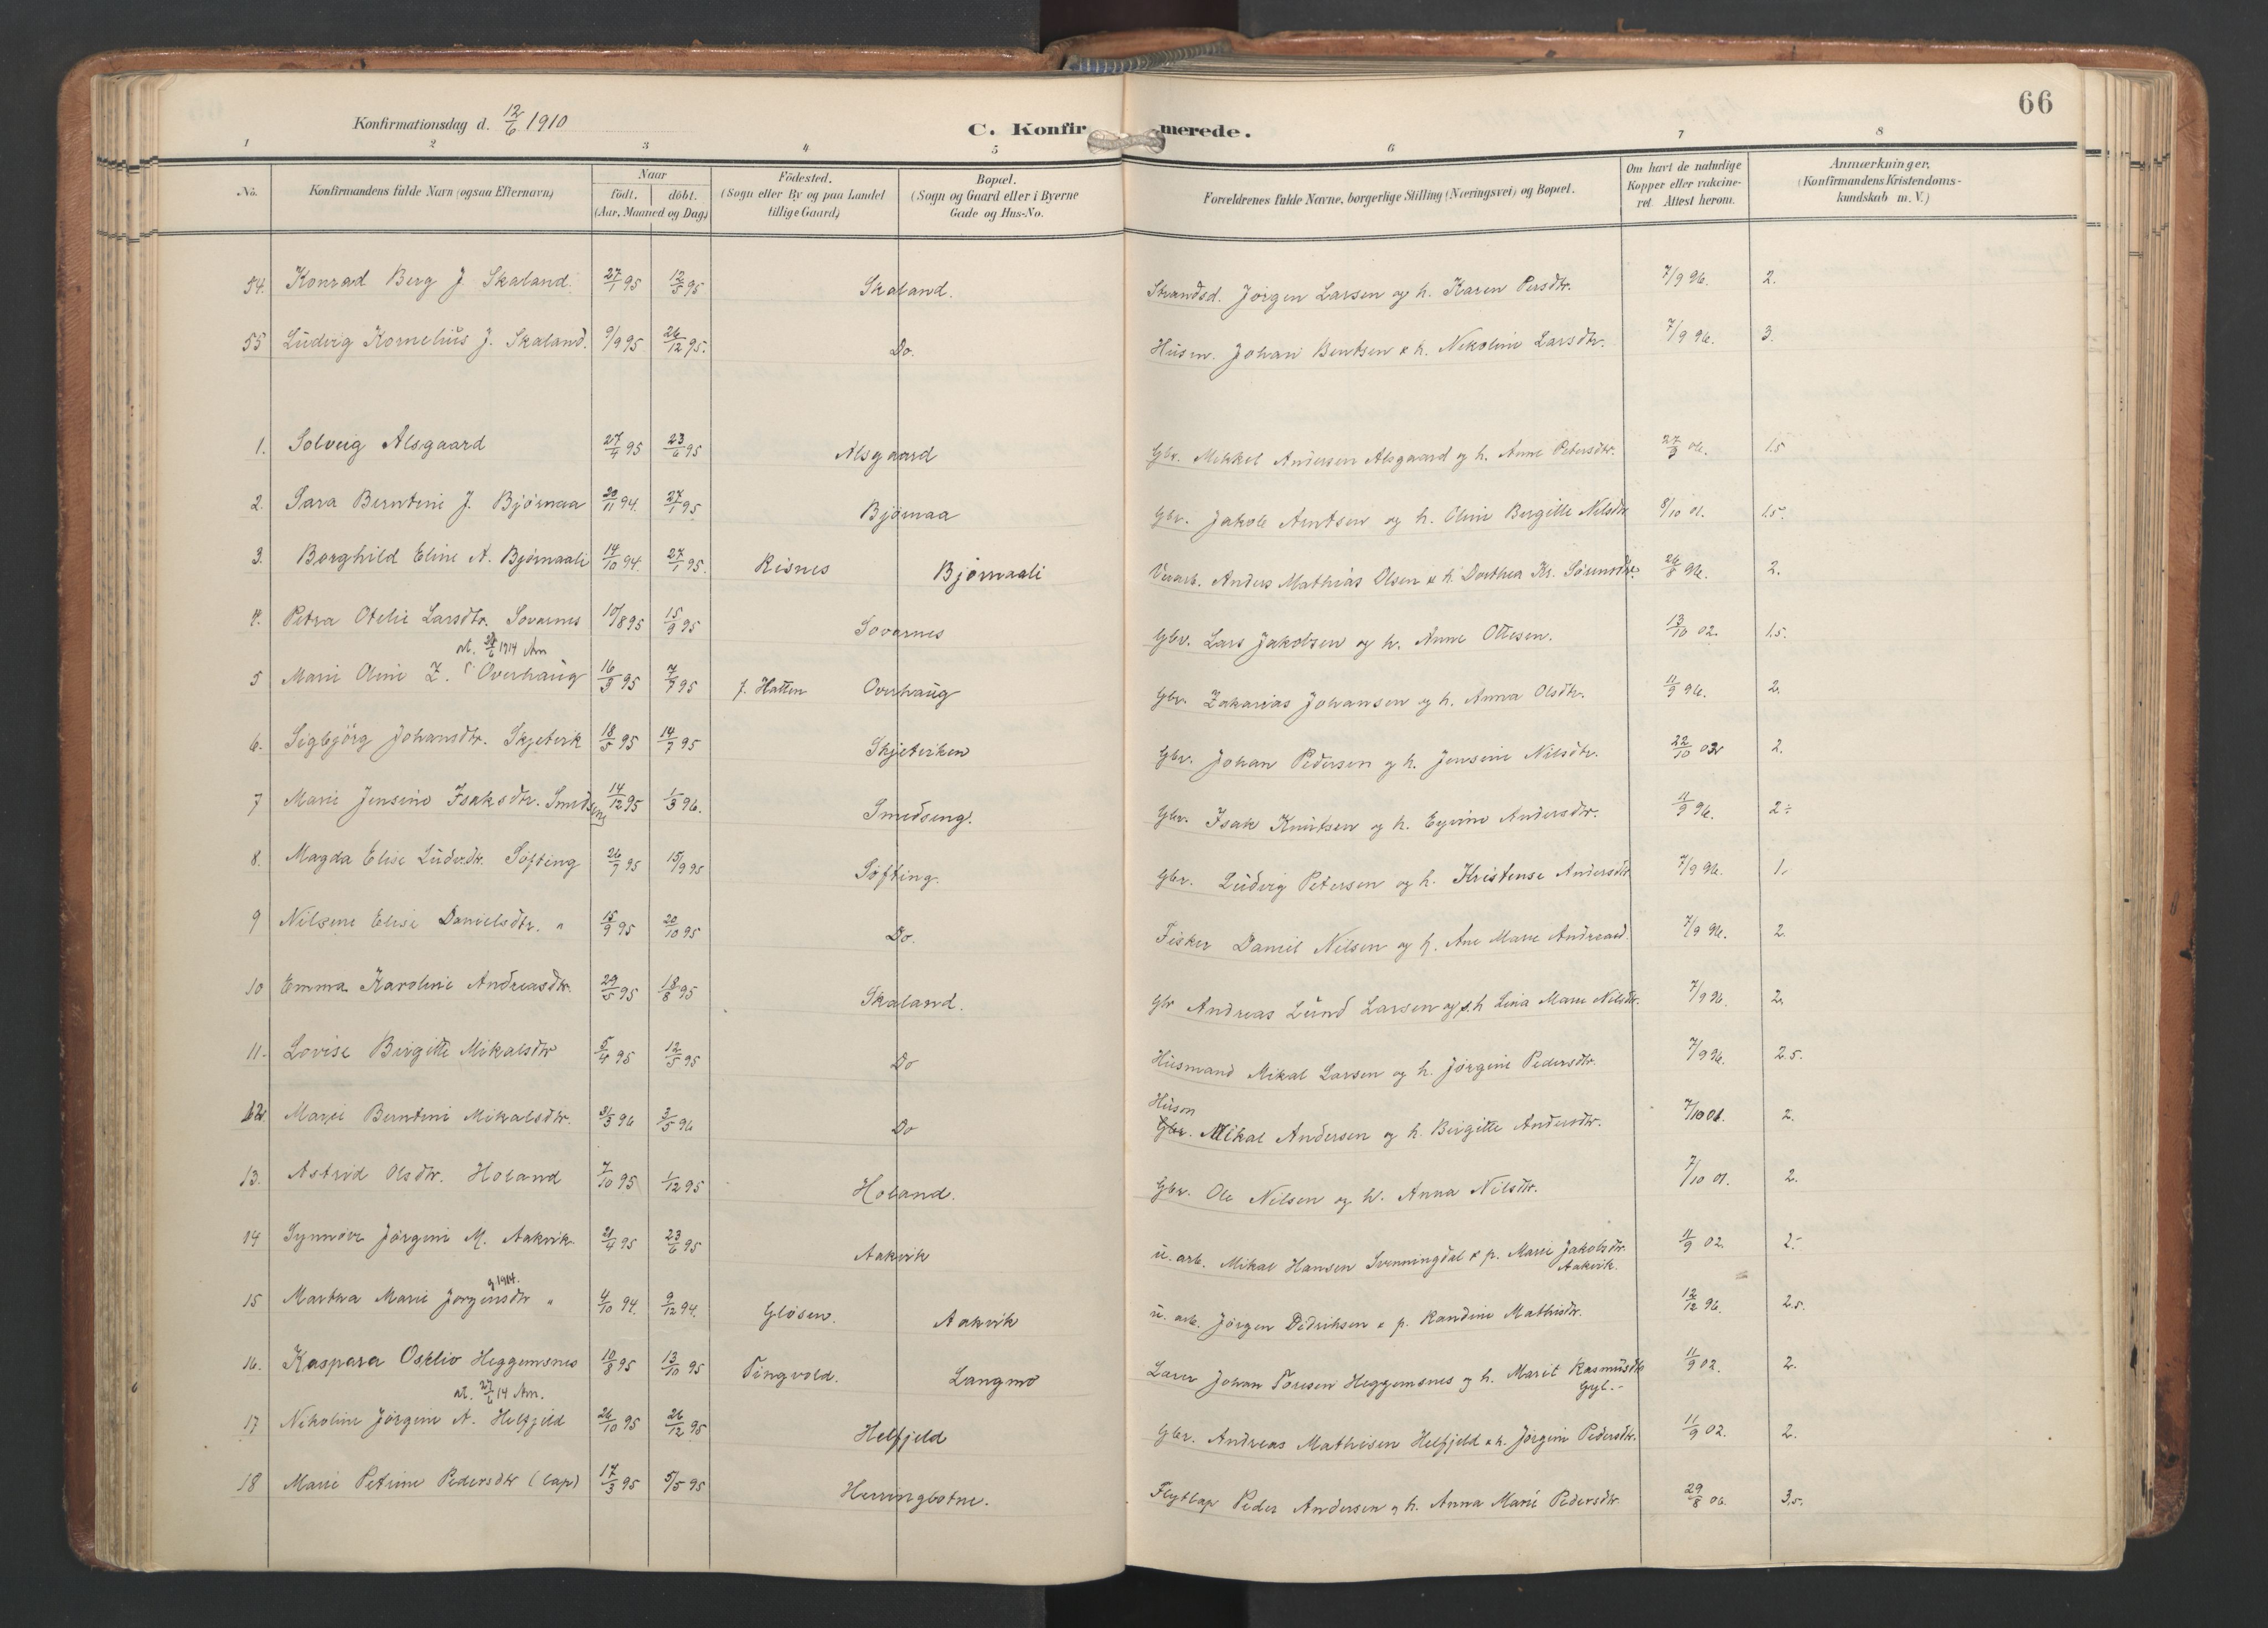 66
Konfirmationsdag d. 12/6 1910
C. Konfirmerede.
1 2 3 4 5 6 7 8
No. Konfirmandens fulde Navn (ogsaa Efternavn) Naar födt. döbt. (Aar, Maaned og Dag) Födested. (Sogn eller By og paa Landet tillige Gaard) Bopæl. (Sogn og Gaard eller i Byerne Gade og Hus-No. Forældrenes fulde Navne, borgerlige Stilling (Næringsvei) og Bopæl. Om havt de naturlige Kopper eller vakcineret. Attest herom. Anmærkninger. (Konfirmandens Kristendomskundskab m. V.)
54. Konrad Berg J. Skaland. 27/1 95 12/5 95 Skaland. Strandsd. Jörgen Larsen og h. Karen Persdtr. 7/9 96. 2.
55 Ludvig Kornelius J. Skaland. 9/9 95 26/12 95. Do. Husm. Johan Bentsen & h. Nikoline Larsdtr. 7/9 96. 3.
1. Solveig Alsgaard 27/4 95 23/6 95 Alsgaard Gbr. Mikkel Andersen Alsgaard og h. Anne Petersdtr. 27/9 06. 1.5
2. Sara Berntine J. Bjørnaa 20/11 94. 27/1 95 Bjørnaa Gbr. Jakob Arntsen og h. Oline Bergitte Nilsdtr 8/10 01. 1.5.
3. Borghild Eline A. Bjørnaali 14/10 94. 27/1 95. Risnes Bjørnaali Verarb. Anders Mathias Olsen & h. Dorthea Kr. Sørensdtr. 26/8 96. 2.
4. Petra Otelie Larsdtr. Sovarnes 10/8 95 15/9 95 Sovarnes Gbr. Lars Jakobsen og h. Anne Ottesen. 13/10 02. 1.5.
at. 1914 Am
5 Marie Oline Z. Overhaug 16/3 95 7/7 95 f. Hatten Overhaug Gbr. Zakarias Johansen og h. Anna Olsdtr. 11/9 96. 2.
6. Sigbjörg Johansdtr. Skjetvik 18/5 95 14/7 95 Skjetviken Gbr. Johan Pedersen og h. Jensine Nilsdtr. 22/10 02 2.
7 Marie Jensine Isaksdtr. Smedseng 14/12 95 1/3 96. Smedseng. Gbr. Isak Knutsen og h. Egine Andersdtr. 11/9 96. 2 ÷
8. Magda Elise Ludv.dtr. Söfting 26/7 95 15/9 95 Söfting. Gbr. Ludvig Petersen og h. Kristense Andersdtr 7/9 96. 1.
9 Nilsine Elise Danielsdtr. " 15/9 95 20/10 95 Do. Fisker Daniel Nilsen og h. Ane Marie Andreasd. 7/9 96. 2.
10 Emma Karoline Andreasdtr. 29/5 95 18/8 95 Skaland. Gbr Andreas Lund Larsen og h Lina Marie Nilsdtr. 7/9 96. 2.
11. Lovise Birgitte Mikalsdtr 5/4 95 12/5 95 Do Husmand Mikal Larsen og h. Jörgine Pedersdtr. 7/9 96. 2.5.
12. Marie Berntine Mikalsdtr. 31/3 96 3/5 96 Do Husm Gbr. Mikal Andersen og h. Birgitte Andersdtr. 7/10 01. 2.
13. Astrid Olsdtr. Holand 7/10 95 1/12 95 Holand. Gbr. Ole Nilsen og h. Anna Nilsdtr. 7/10 01. 2.
14 Synnöve Jørgine M. Aakvik 21/4 95 23/6 95 Aakvik u. arb. Mikal Hansen Svenningdal & p. Marie Jakobsdtr. Aakvik. 11/9 02. 2.-
g 1914.
15 Martha Marie Jørgensdtr " 4/10 94. 9/12 94. Glösen. Aakvik u. arb. Jørgen Didriksen & p. Randine Mathisdtr. 12/12 96. 2.5.
16. Kaspara Oseliv Heggemsnes 10/8 95 13/10 95 Tingvold. Langmo Lærer Johan Toresen Heggemsnes og h. Marit Rasmusdtr Gyl.- 11/9 02. 2.
at. 14 Am.
17 Nikoline Jørgine A. Helfjeld 26/10 95 26/12 95 Helfjeld Gbr. Andreas Mathisen Helfjeld & h. Jørgine Pedersdtr. 11/9 02. 2.
18 Marie Petrine Pedersdtr (lap) 17/3 95 5/5 95 Herringbotne. Flytlap Peder Andersen og h. Anna Marie Pedersdtr. 29/8 06. 3.5.